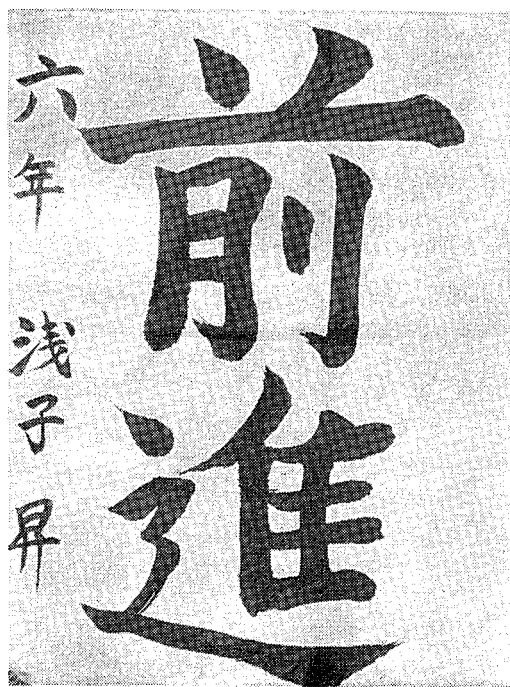 前進
六年 浅子 昇